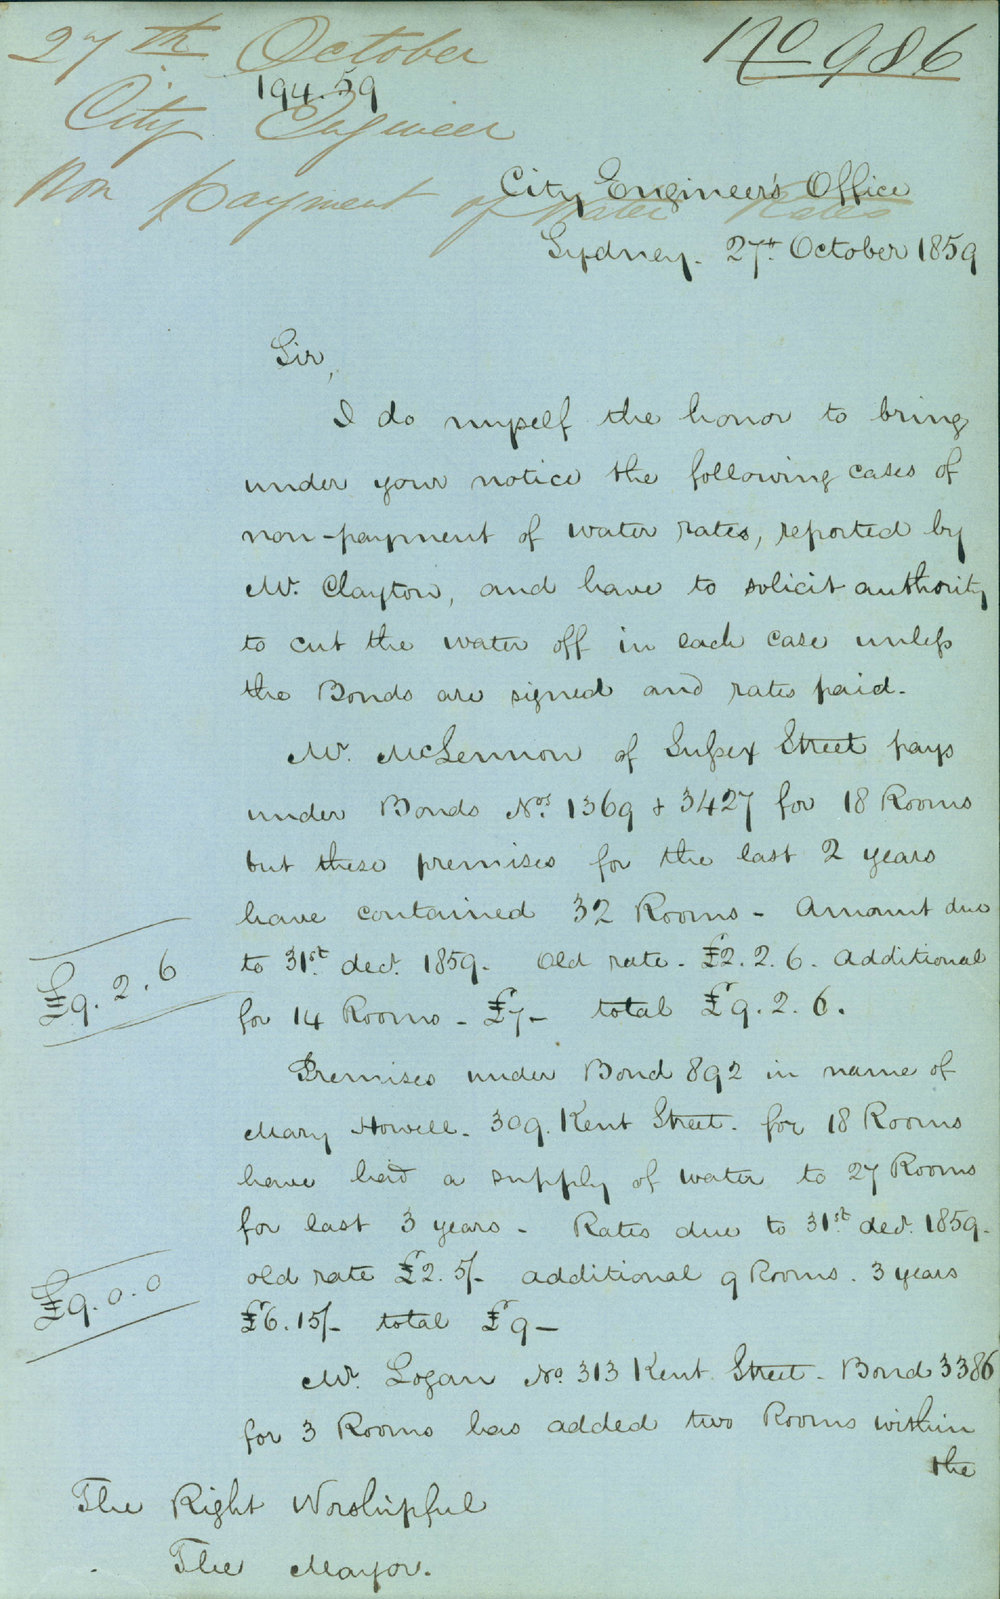 27th October
No 986
194.59
City Engineer
Non payment of Water Rates
City Engineer's Office
Sydney. 27th October 1859
Sir,
I do myself the honor to bring
under your notice the following cases of
non-payment of water rates, reported by
Mr. Clayton, and have to solicit authority
to cut the water off in each case unless
the Bonds are signed and rates paid.
Mr. McLennon of Sussex Street pays
under Bonds Nos. 1369 & 3427 for 18 Rooms
but these premises for the last 2 years
have contained 32 Rooms - Amount due
to 31st. decr. 1859. Old rate - £2.2.6. Additional
£9.2.6
for 14 Rooms - £7 - total £9.2.6.
Premises under Bond 892 in name of
Mary Howell. 309. Kent Street. for 18 Rooms
have had a supply of water to 27 Rooms
for last 3 years - Rates due to 31st. decr. 1859.
old rate £2.5/- additional 9 Rooms. 3 years
£9.0.0
£6.15/- total £9 -
Mr. Logan No. 313 Kent Street - Bond 3386
for 3 Rooms has added two Rooms within
the
The Right Worshipful
The Mayor.